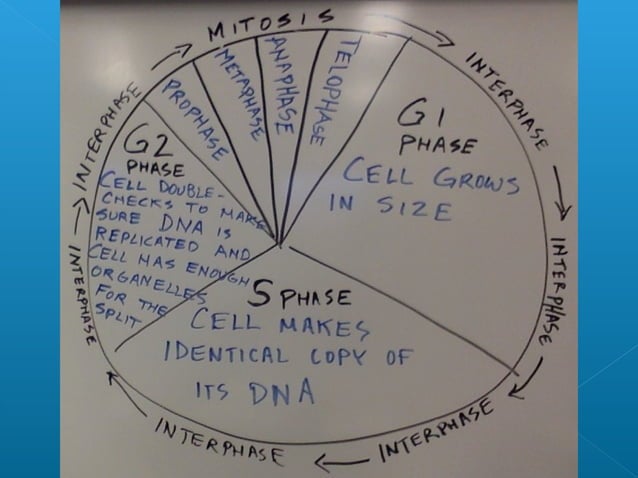 MITOSIS
INTERPHASE
INTERPHASE
INTERPHASE
INTERPHASE
INTERPHASE
INTERPHASE
PROPHASE
METAPHASE
ANAPHASE
TELOPHASE
G1
PHASE
CELL GROWS
IN SIZE
S PHASE
CELL MAKES
IDENTICAL COPY OF
ITS DNA
G2
PHASE
CELL DOUBLE-
CHECKS TO MAKE
SURE DNA IS
REPLICATED AND
CELL HAS ENOUGH
ORGANELLES
FOR THE
SPLIT